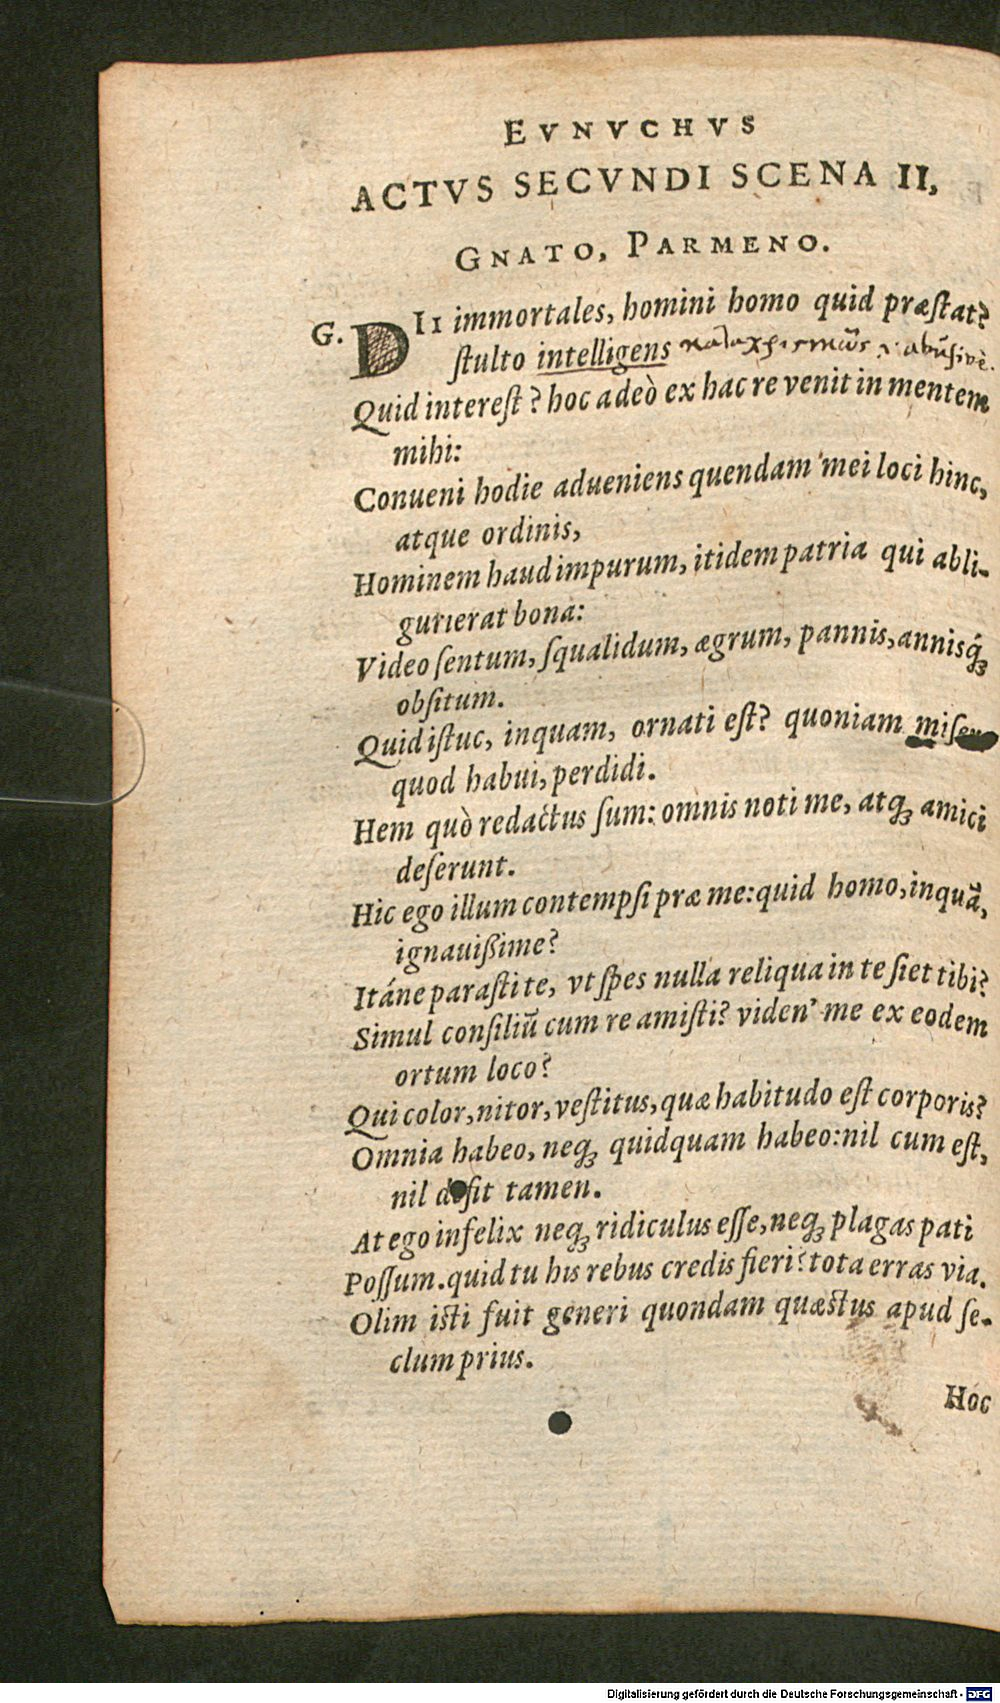 EVNVCHVS
ACTVS SECVNDI SCENA II,
GNATO, PARMENO.
G. DII immortales, homini homo quid præſtat?
ſtulto intelligens abusivè.
Quid intereſt? hoc adeò ex hac re venit in mentem
mihi:
Conueni hodie adueniens quendam mei loci hinc,
atque ordinis,
Hominem haud impurum, itidem patria qui abli-
gurierat bona:
Video ſentum, ſqualidum, ægrum, pannis, annisq́;
obſitum.
Quid iſtuc, inquam, ornati eſt? quoniam
quod habui, perdidi.
Hem quò redactus ſum: omnis noti me, atq; amici
deſerunt.
Hic ego illum contempſi præ me: quid homo, inquā,
ignauißime?
Itáne paraſti te, vt ſpes nulla reliqua in te ſiet tibi?
Simul conſiliū cum re amiſti? viden' me ex eodem
ortum loco?
Qui color, nitor, veſtitus, quæ habitudo eſt corporis?
Omnia habeo, neq; quidquam habeo: nil cum eſt,
nil deſit tamen.
At ego infelix neq; ridiculus eſſe, neq; plagas pati
Poſſum. quid tu his rebus credis fieri? tota erras via.
Olim iſti fuit generi quondam quæstus apud ſe-
clum prius.
Hoc
Digitalisierung gefördert durch die Deutsche Forschungsgemeinschaft - DFG